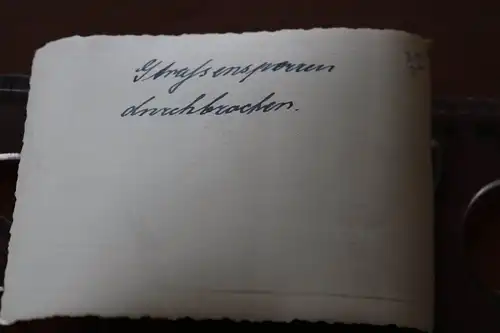 Straßensperren
durchbrochen.